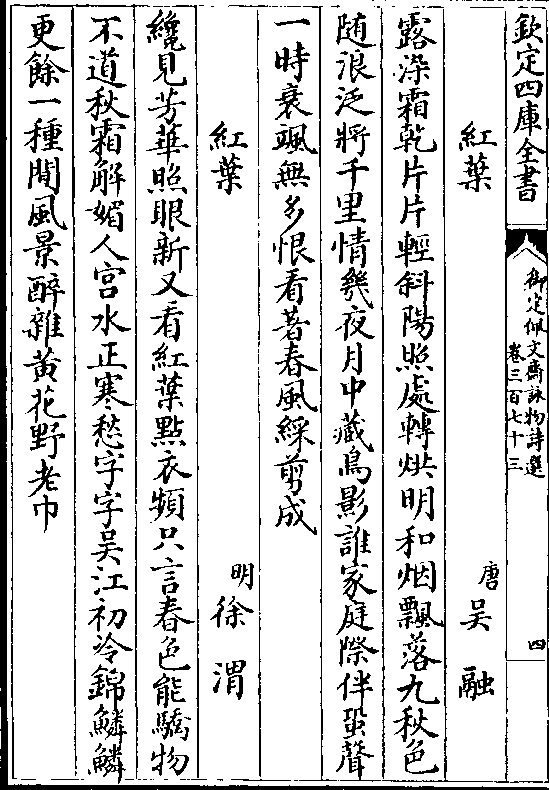 欽定四庫全書
御定佩文齋詠物詩選
卷三百七十三
四
紅葉
唐吴融
露染霜乾片片輕斜陽照處轉烘明和烟飄落九秋色
随浪泛將千里情幾夜月中藏鳥影誰家庭際伴蛩聲
一時衰颯無多恨看著春風綵剪成
紅葉
明徐渭
纔見芳華照眼新又看紅葉點衣頻只言春色能驕物
不道秋霜解媚人宫水正寒愁字字吴江初冷錦鱗鱗
更餘一種閒風景醉雜黄花野老巾